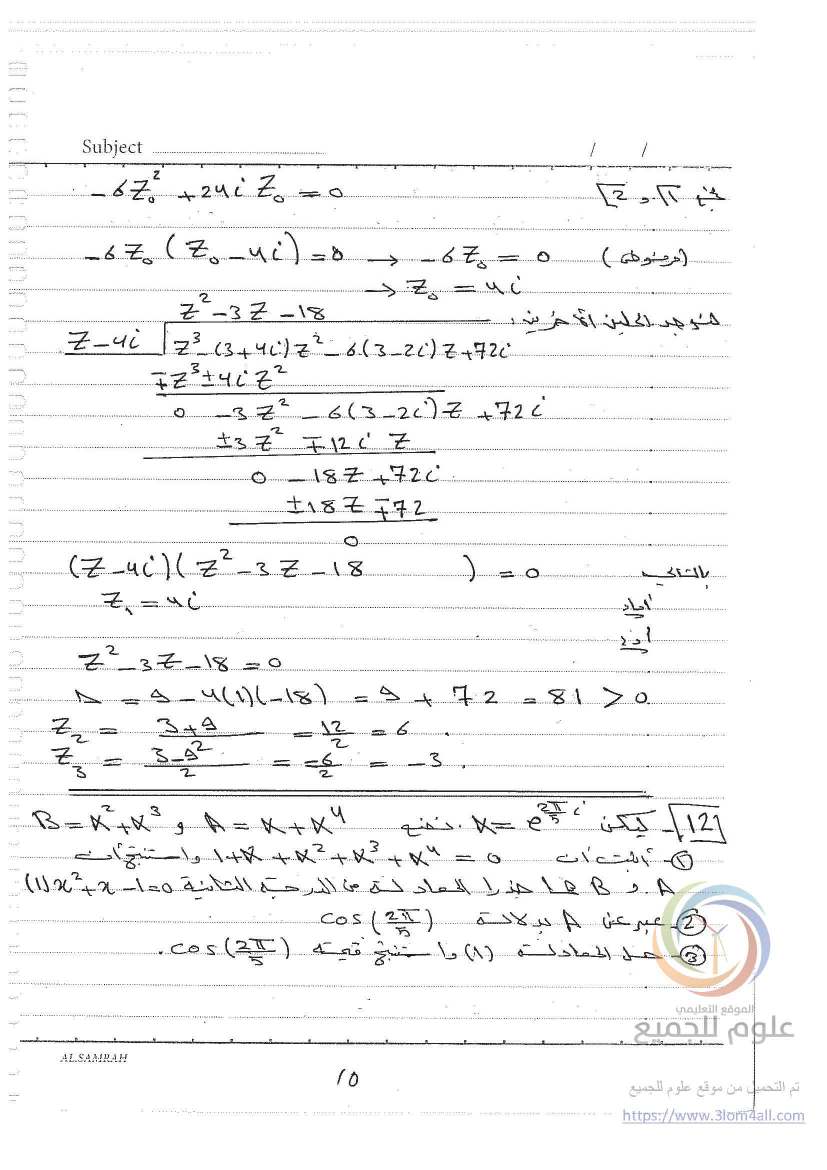 Subject / /
بجمع 1 و 2
-6Z₀² + 24i Z₀ = 0
-6Z₀(Z₀ - 4i) = 0 → -6Z₀ = 0 (مرفوض)
→ Z₀ = 4i
لنوجد الحلين الآخرين:
Z² - 3Z - 18
Z - 4i Z³ - (3+4i)Z² - 6(3-2i)Z + 72i
∓Z³ ± 4iZ²
0 - 3Z² - 6(3-2i)Z + 72i
±3Z² ∓ 12i Z
0 - 18Z + 72i
±18Z ∓ 72
0
بالتالي (Z - 4i)(Z² - 3Z - 18 ) = 0
إما Z₁ = 4i
أو
Z² - 3Z - 18 = 0
Δ = 9 - 4(1)(-18) = 9 + 72 = 81 > 0
Z₂ = 3+9/2 = 12/2 = 6 .
Z₃ = 3-9/2 = -6/2 = -3 .
12 - ليكن α = e^(2π/5 i) . نضع A = α + α⁴ و B = α² + α³
① - أثبت أن 1 + α + α² + α³ + α⁴ = 0 واستنتج أن
A و B هما جذرا المعادلة من الدرجة الثانية x² + x - 1 = 0 (1)
② - عبر عن A بدلالة cos(2π/5)
③ - حل المعادلة (1) واستنتج قيمة cos(2π/5) .
الموقع التعليمي
علوم للجميع
AL SAMRAH
10
تم التحميل من موقع علوم للجميع
https://www.3lom4all.com